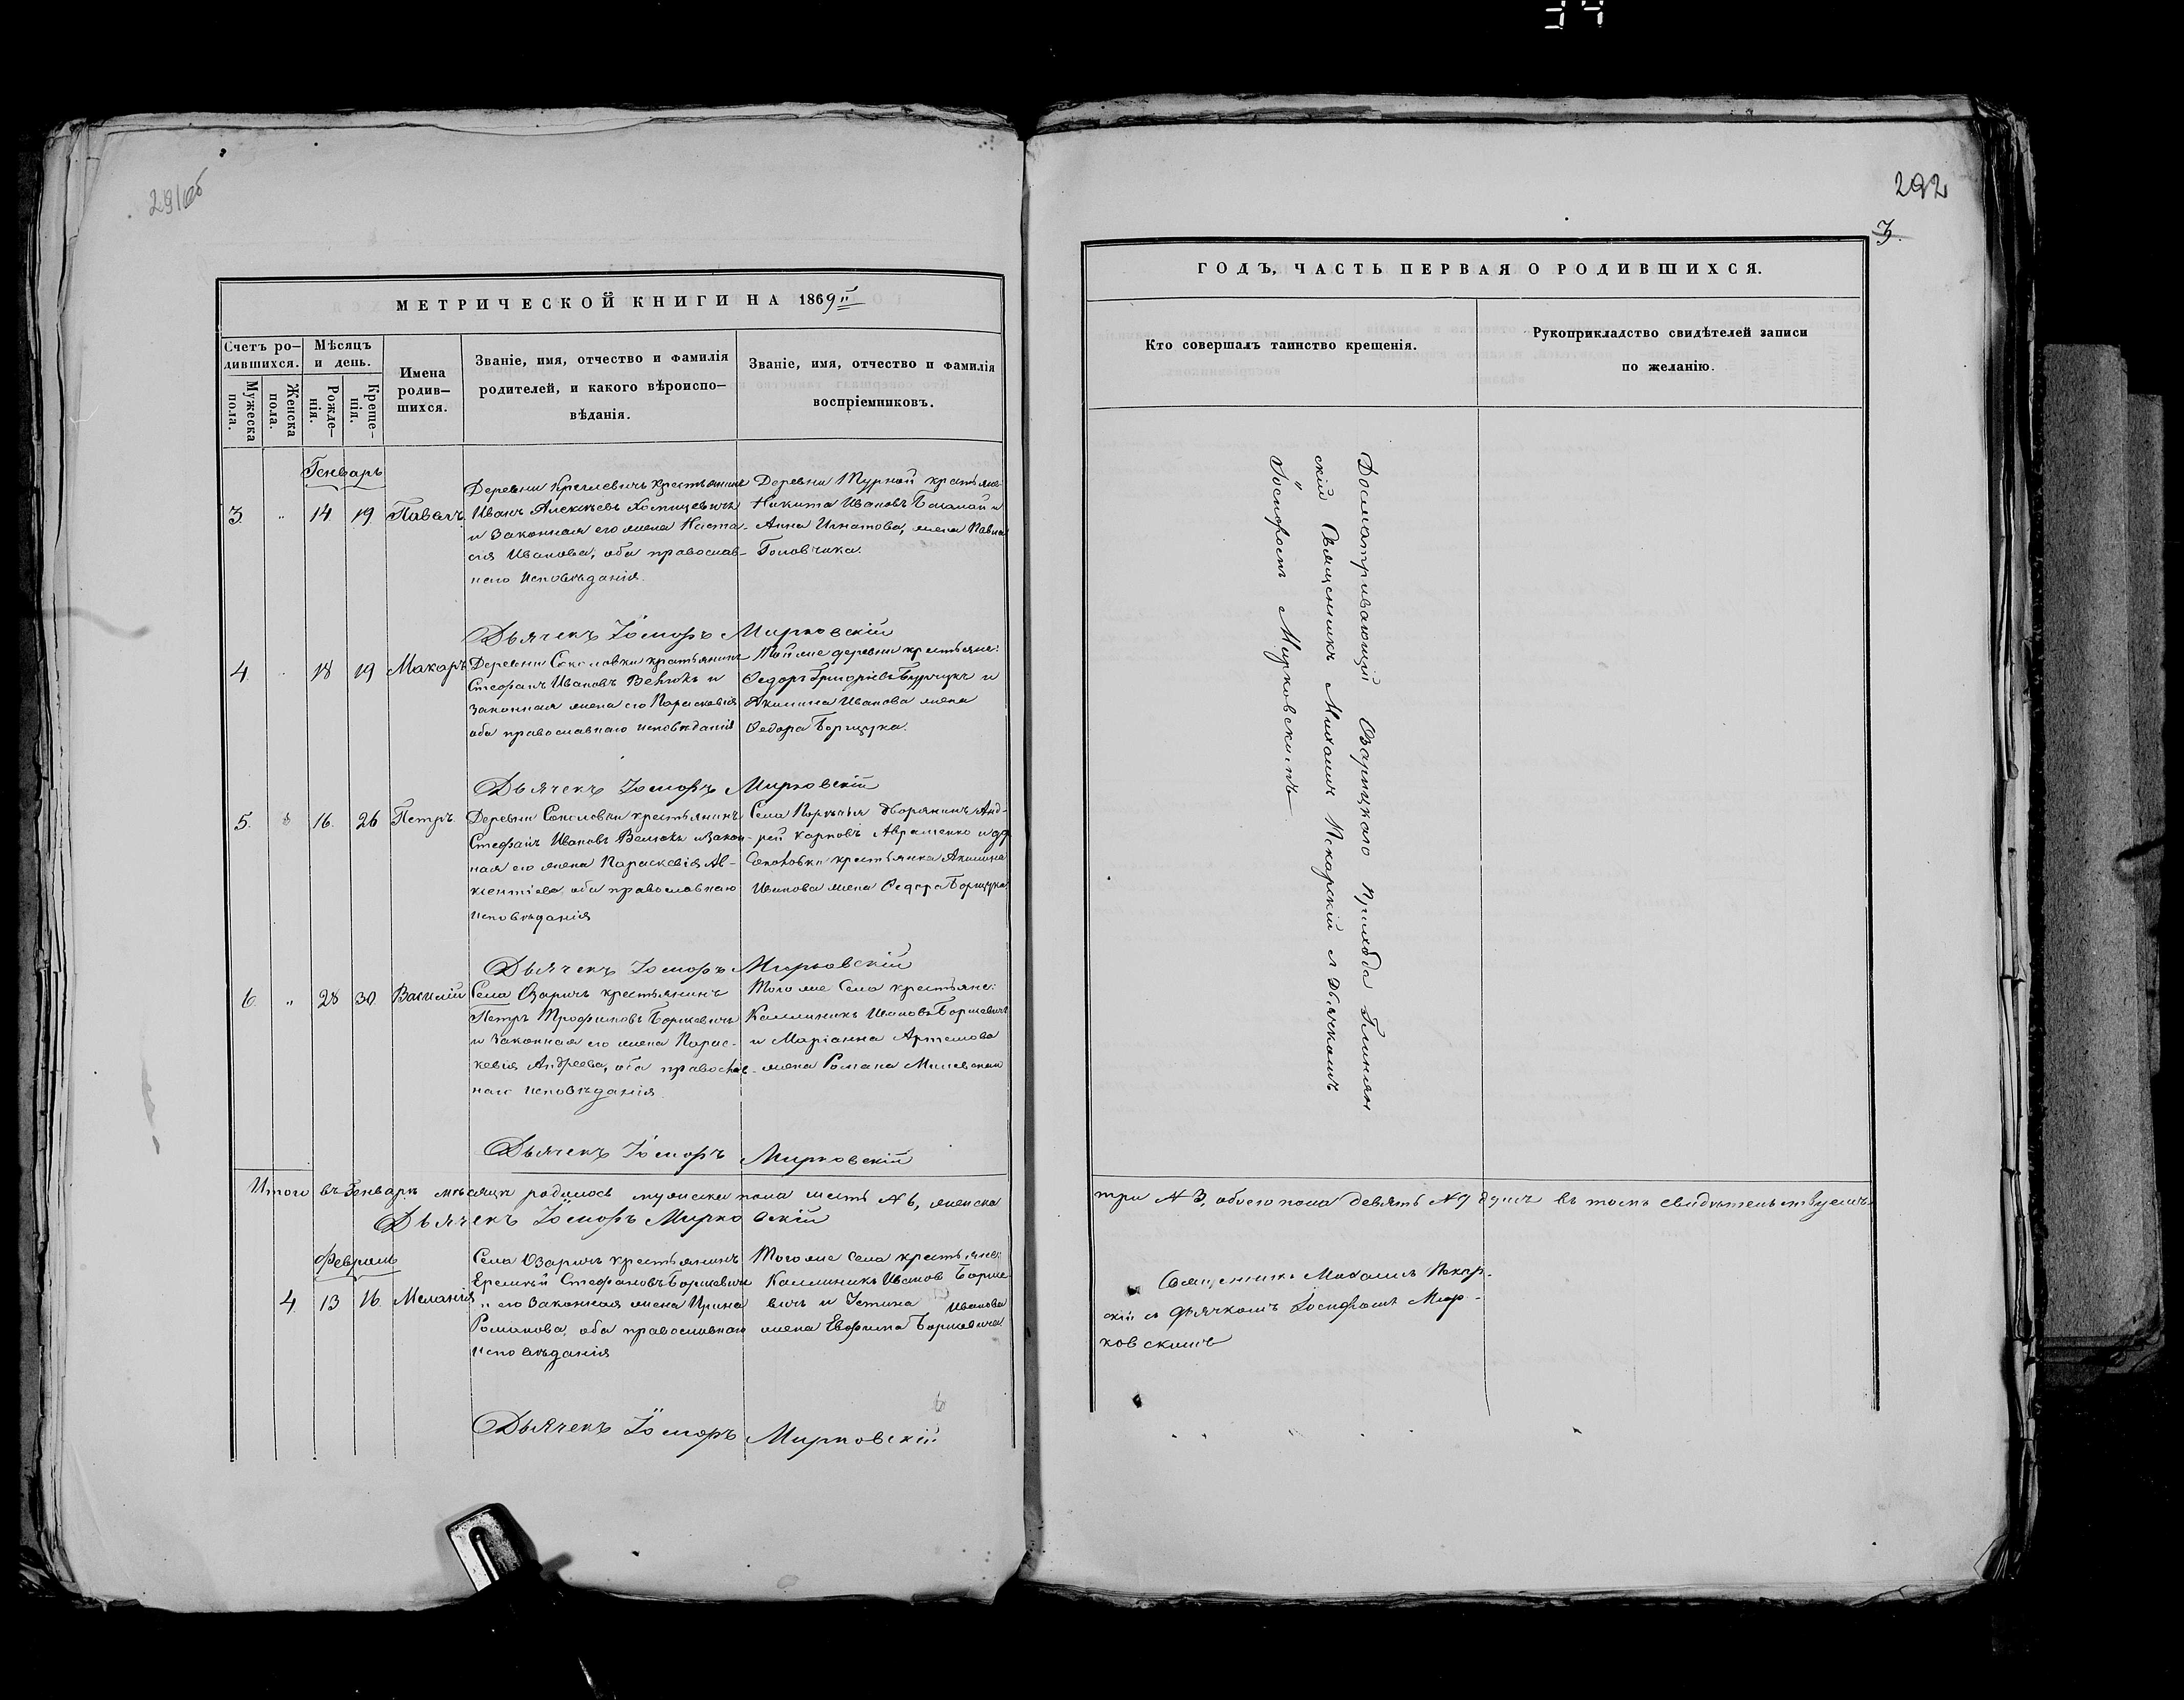 34
291об
МЕТРИЧЕСКОЙ КНИГИ НА 1869й
Счетъ ро-
дившихся.
Мужеска
пола.
Женска
пола.
Мѣсяцъ
и день.
Рожде-
нія.
Креще-
нія.
Имена
родив-
шихся.
Званіе, имя, отчество и фамилія
родителей, и какого вѣроиспо-
вѣданія.
Званіе, имя, отчество и фамилія
воспріемниковъ.
Генварь
3. " 14 19 Павелъ
Деревни крестьянинъ
Иванъ Алексѣевъ
и законная его жена Наста-
сія Иванова, оба православ-
наго исповѣданія.
Деревни Турной крестьяне
Никита Ивановъ и
Анна Игнатова, жена Павла
Головчика.
Дьячекъ Іосифъ Мирковскій
4. " 18 19 Макаръ
Деревни Соколовки крестьянинъ
Стефанъ Ивановъ и
законная жена его Парасковія
оба православнаго исповѣданія
Той же деревни крестьяне:
Федоръ и
Акилина Иванова жена
Федора Борщука.
Дьячекъ Іосифъ Мирковскій
5. 16. 26 Петръ
Деревни Соколовки крестьянинъ
Стефанъ Ивановъ и закон-
ная его жена Параскевія Ав-
кентіева, оба православнаго
исповѣданія
Села Порѣчья дворянинъ Анд-
рей Карповъ Авраменко и др
Соколовки крестьянка Акилина
Иванова жена Федора Борщука
Дьячекъ Іосифъ Мирковскій
6. " 28 30 Василій
Села Озаричъ крестьянинъ
Петръ Трофимовъ Боршевичъ
и законная его жена Парас-
кевія Андреева, оба православ-
наго исповѣданія
Того же села крестьяне:
Каллиникъ Ивановъ Боршевичъ
и Маріанна Артемова
жена Романа
Дьячекъ Іосифъ Мирковскій
Итого въ Генварѣ мѣсяцѣ родилось мужеска пола шесть № 6, женска
Дьячекъ Іосифъ Мирковскій
Февраль
4. 13 16. Меланія
Села Озаричъ крестьянинъ
Еремѣй Стефановъ Боршевичъ
и его законная жена Ирина
Романова, оба православнаго
исповѣданія
Того же села крестьяне:
Каллиникъ Иванов Борше-
вичъ и Устина Иванова
жена Евфима Боршевича
Дьячекъ Іосифъ Мирковскій
292
3.
ГОДЪ, ЧАСТЬ ПЕРВАЯ О РОДИВШИХСЯ.
Кто совершалъ таинство крещенія.
Рукоприкладство свидѣтелей записи
по желанію.
Досматривающій Озарицкаго Прихода Глинян
скій Священникъ Михаилъ Пекарскій съ Дьячкомъ
Іосифомъ Мирковскимъ
три № 3, обоего пола девять № 9 душъ въ томъ свидѣтельствуемъ
Священникъ Михаилъ Пекар-
скій съ дьячкомъ Іосифомъ Мир-
ковскимъ